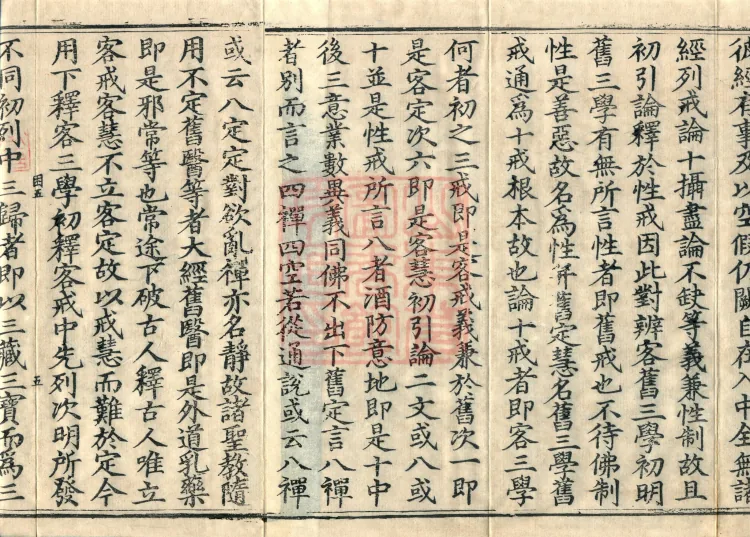 彼經有事及以空假仍闕自在八中全無諸
經列戒論十攝盡論不缺等義兼性制故且
初引論釋於性戒因此對辨客舊三學初明
舊三學有無所言性者即舊戒也不待佛制
性是善惡故名爲性并舊定慧名舊三學舊
戒通爲十戒根本故也論十戒者即客三學
何者初之三戒即是客戒義兼於舊次一即
是客定次六即是客慧初引論二文或八或
十並是性戒所言八者酒防意地即是十中
後三意業數異義同佛不出下舊定言八禪
者別而言之四禪四空若從通說或云八禪
或云八定定對欲亂禪亦名靜故諸聖教隨
用不定舊醫等者大經舊醫即是外道乳藥
即是邪常等也常途下破古人釋古人唯立
客戒客慧不立客定故以戒慧而難於定今
用下釋客三學初釋客戒中先列次明所發
五
不同初列中三歸者即以三藏三寶而爲三